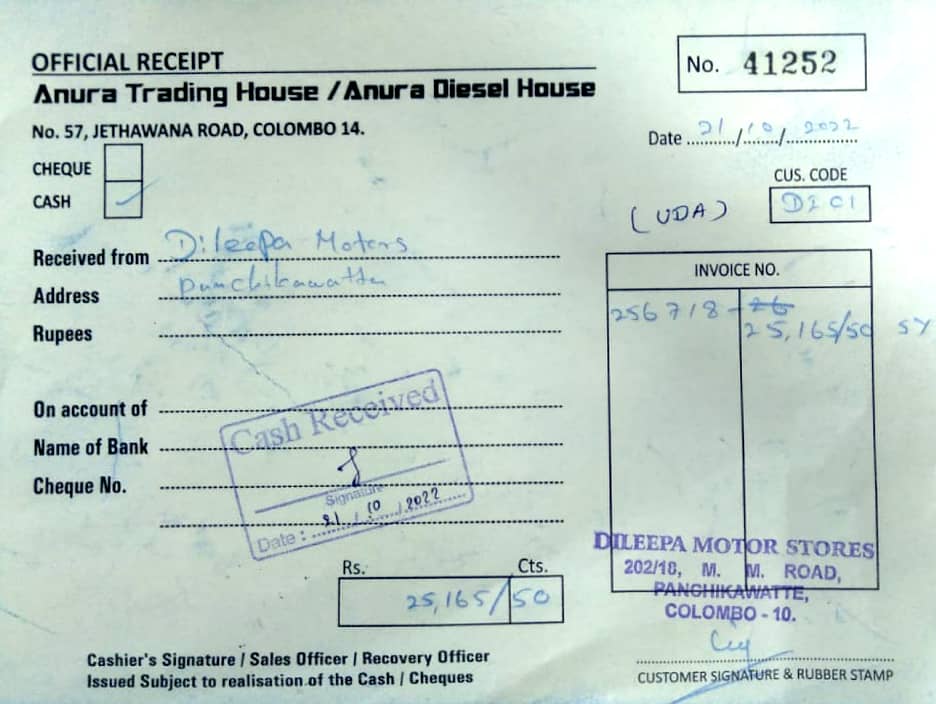 OFFICIAL RECEIPT
No. 41252
Anura Trading House / Anura Diesel House
No. 57, JETHAWANA ROAD, COLOMBO 14.
Date 21/10/2022
CHEQUE
CUS. CODE
CASH ✓
(UDA) D2C1
Received from Dileepa Motors
INVOICE NO.
Address Punchikawatta
256718-26
Rupees
25,165/50
On account of
Cash Received
Name of Bank
Cheque No.
Signature
Date: 21/10/2022
DILEEPA MOTOR STORES
202/18, M. M. ROAD,
PANCHIKAWATTE,
COLOMBO - 10.
Rs. Cts.
25,165/50
Cashier's Signature / Sales Officer / Recovery Officer
Issued Subject to realisation of the Cash / Cheques
CUSTOMER SIGNATURE & RUBBER STAMP